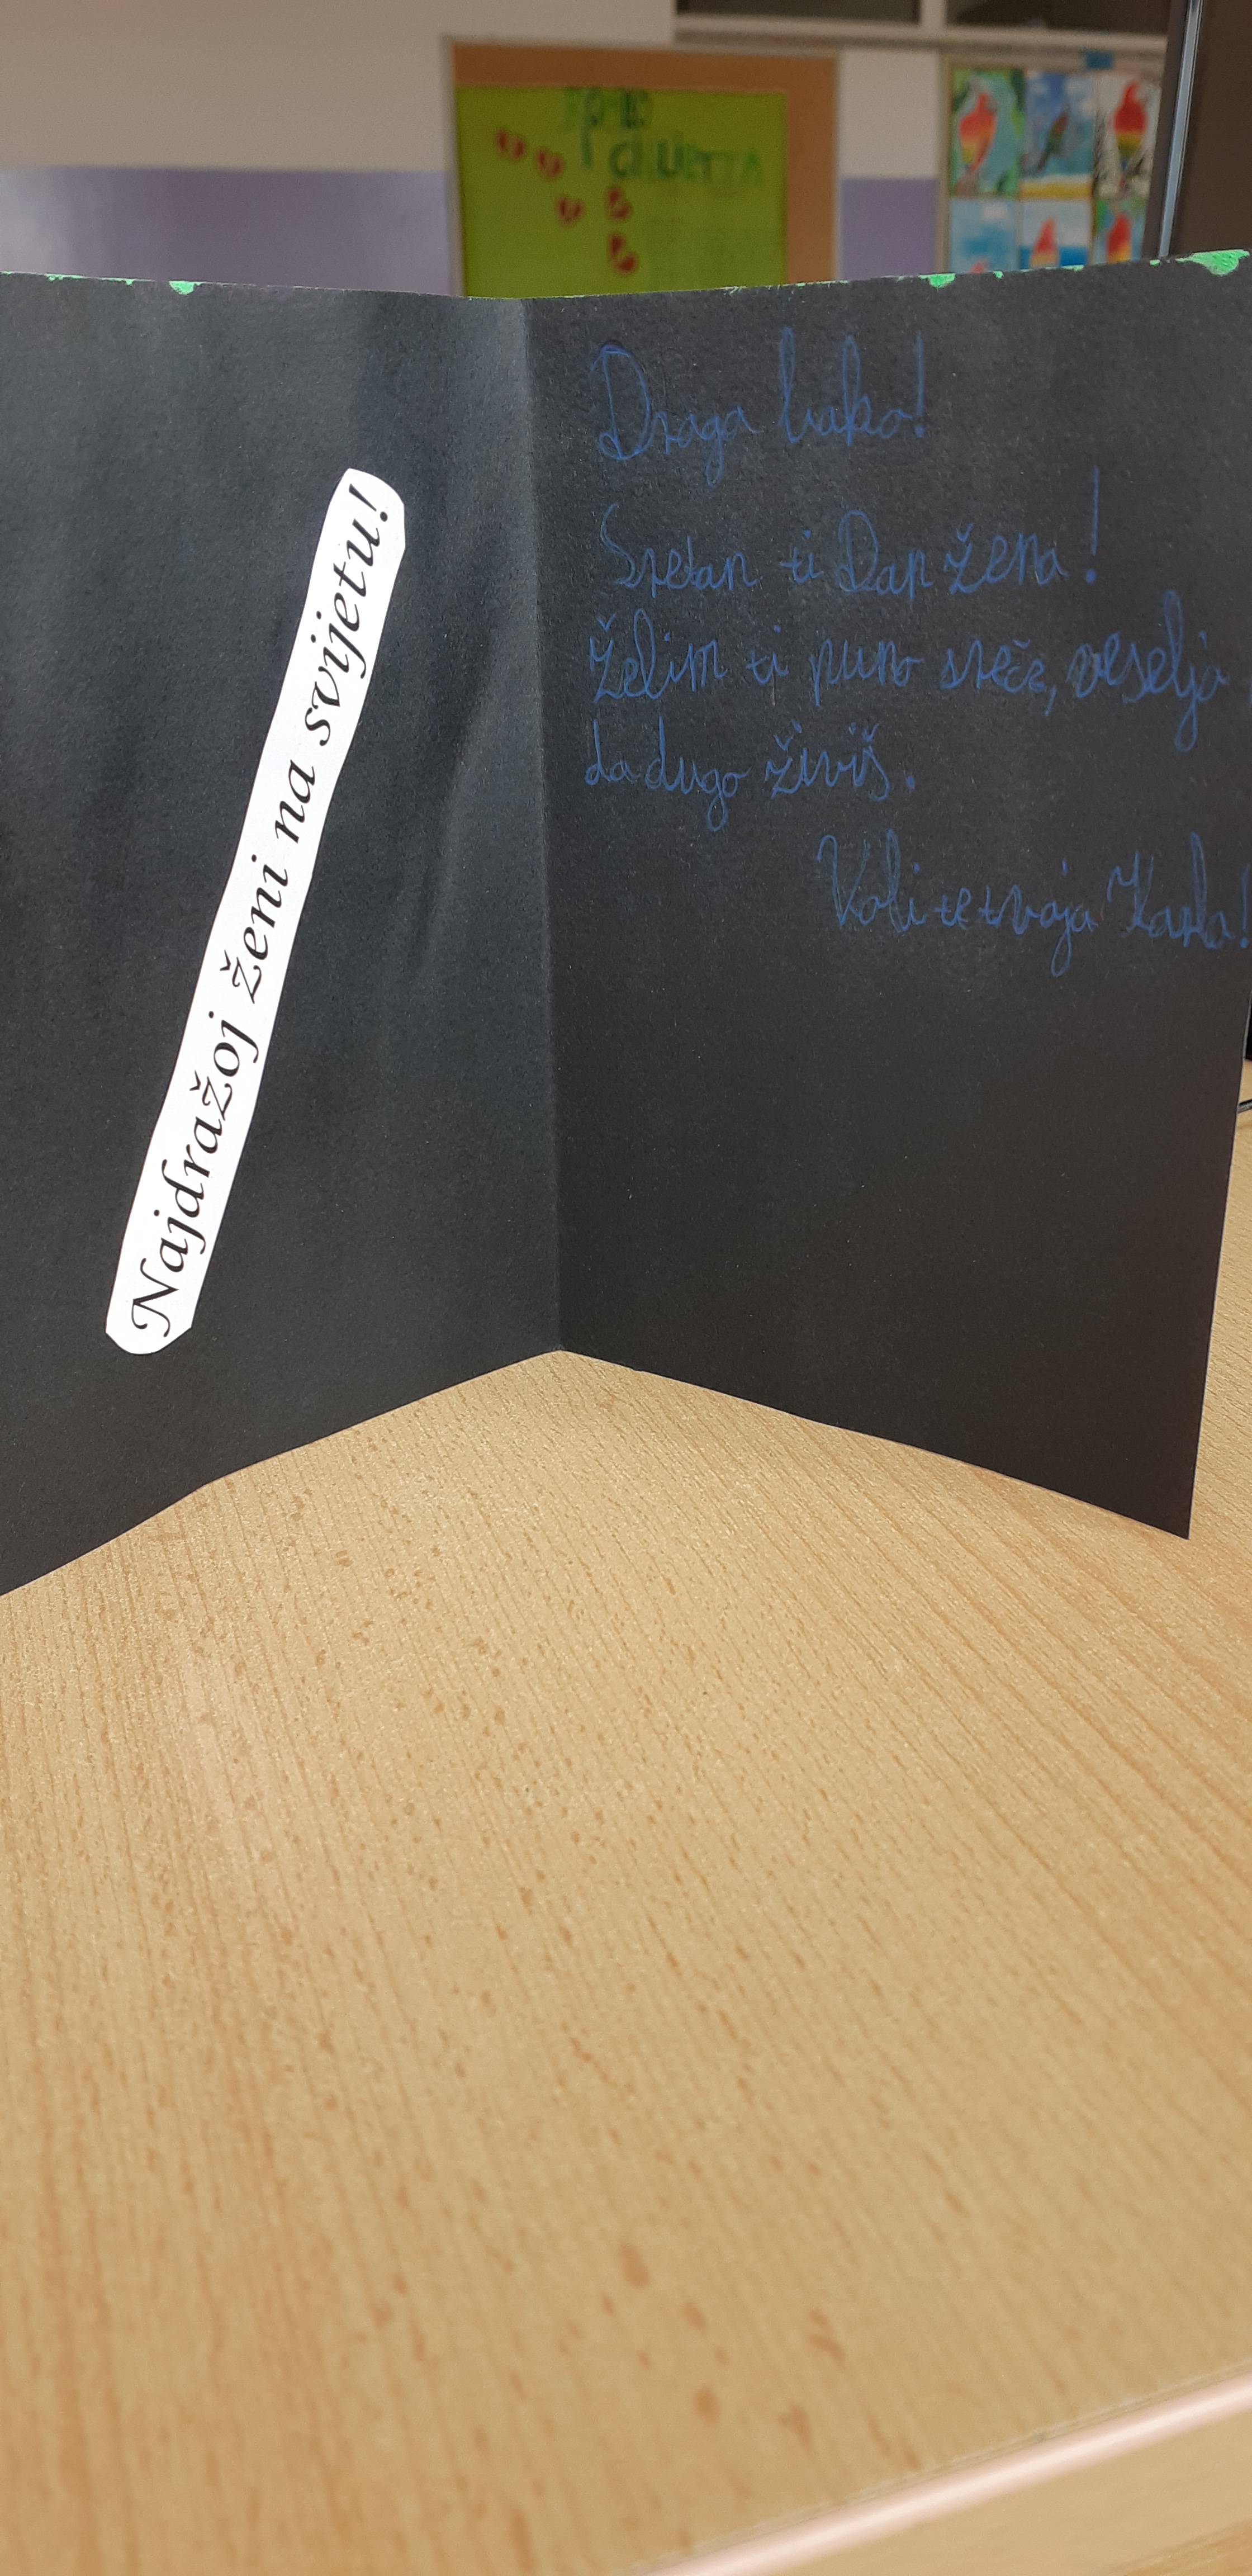 ROMEO
I GIULIETTA
Najdražoj ženi na svijetu!
Draga bako!
Sretan ti Dan žena!
Želim ti puno sreče, veselja
da dugo živiš.
Voli te tvoja Karla!